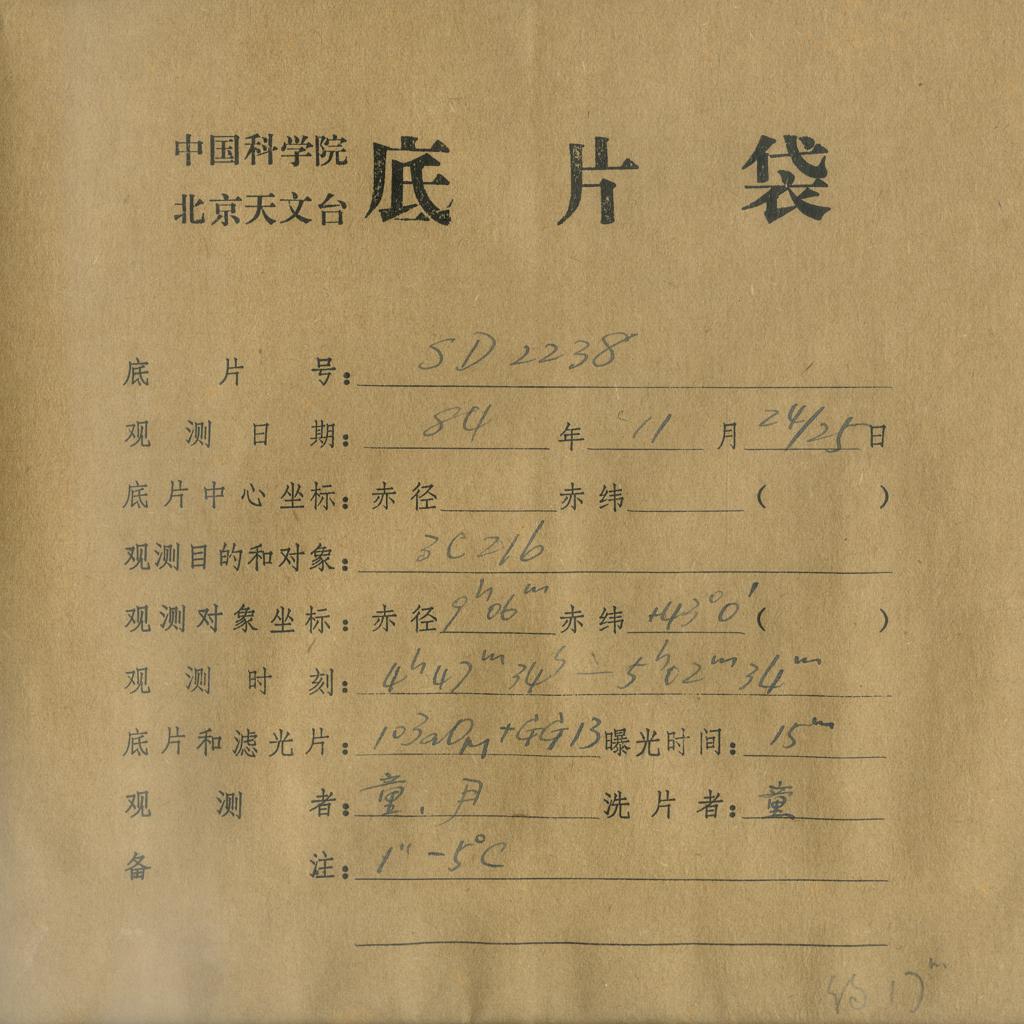 中国科学院
北京天文台
底片袋
底片号: SD 2238
观测日期: 84年 11月 24/25日
底片中心坐标: 赤径 赤纬 ( )
观测目的和对象: 3C216
观测对象坐标: 赤径 9ʰ06ᵐ 赤纬 +43°0′ ( )
观测时刻: 4ʰ47ᵐ34ˢ — 5ʰ02ᵐ34ᵐ
底片和滤光片: 103aO +GG13 曝光时间: 15ᵐ
观测者: 童.月 洗片者: 童
备注: 1″ -5°C
约 17ᵐ